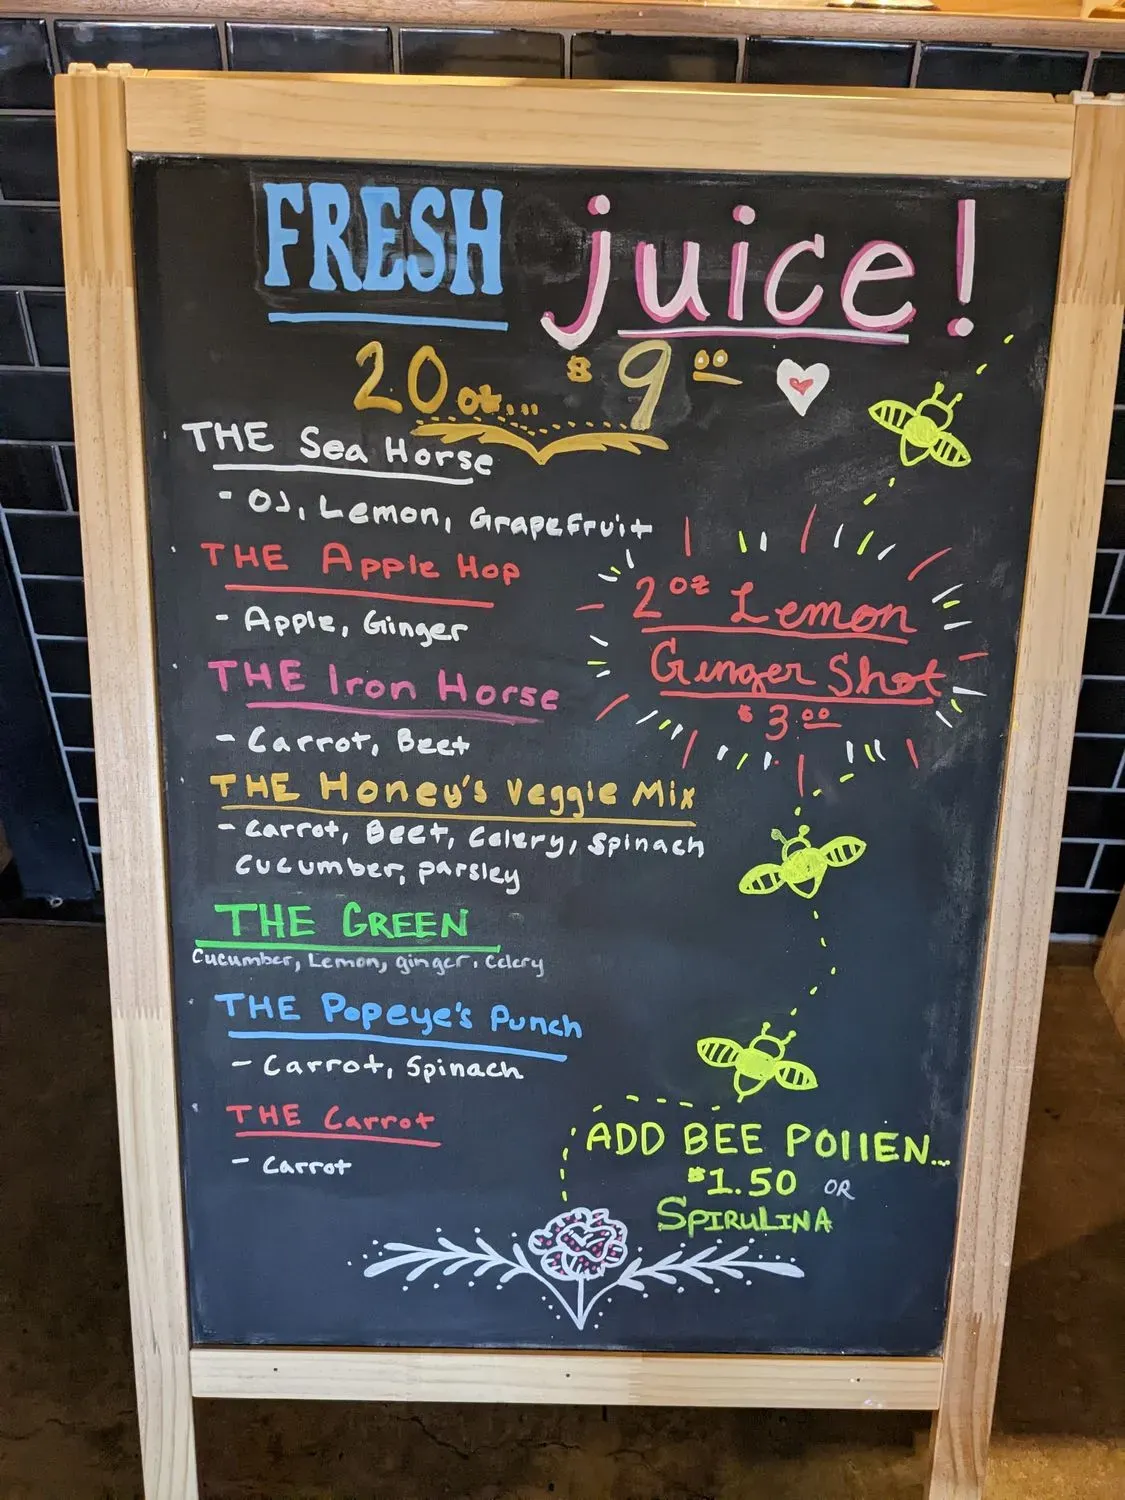 FRESH juice!
20 oz... $9.00
THE Sea Horse
- OJ, Lemon, GrapeFruit
THE Apple Hop
- Apple, Ginger
THE Iron Horse
- Carrot, Beet
THE Honey's Veggie Mix
- Carrot, Beet, Celery, Spinach
Cucumber, parsley
THE GREEN
Cucumber, Lemon, ginger, Celery
THE Popeye's Punch
- Carrot, Spinach
THE Carrot
- Carrot
2 oz Lemon
Ginger Shot
$3.00
ADD BEE POllEN...
$1.50 OR
SPIRULINA